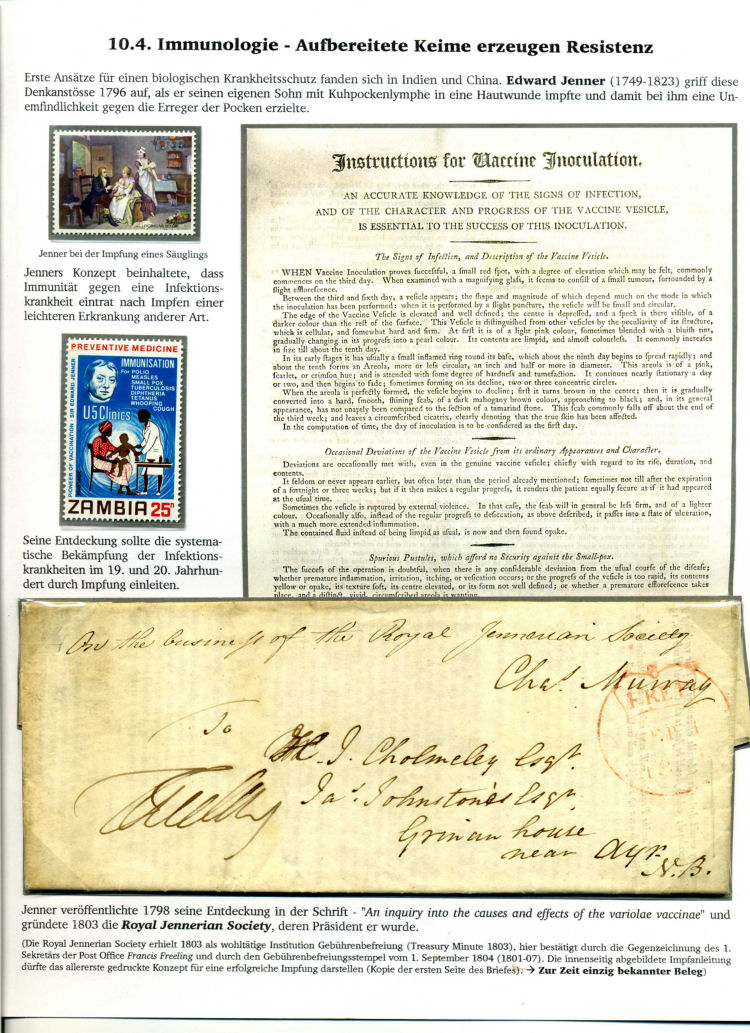 10.4. Immunologie - Aufbereitete Keime erzeugen Resistenz
Erste Ansätze für einen biologischen Krankheitsschutz fanden sich in Indien und China. Edward Jenner (1749-1823) griff diese
Denkanstösse 1796 auf, als er seinen eigenen Sohn mit Kuhpockenlymphe in eine Hautwunde impfte und damit bei ihm eine Un-
emfindlichkeit gegen die Erreger der Pocken erzielte.
Jenner bei der Impfung eines Säuglings
Jenners Konzept beinhaltete, dass
Immunität gegen eine Infektions-
krankheit eintrat nach Impfen einer
leichteren Erkrankung anderer Art.
PREVENTIVE MEDICINE
PIONEER OF VACCINATION - SIR EDWARD JENNER
IMMUNISATION
For POLIO
MEASLES
SMALL POX
TUBERCULOSIS
DIPHTHERIA
TETANUS
WHOOPING
COUGH
U5 Clinics
ZAMBIA 25n
Seine Entdeckung sollte die systema-
tische Bekämpfung der Infektions-
krankheiten im 19. und 20. Jahrhun-
dert durch Impfung einleiten.
Instructions for Vaccine Inoculation.
AN ACCURATE KNOWLEDGE OF THE SIGNS OF INFECTION,
AND OF THE CHARACTER AND PROGRESS OF THE VACCINE VESICLE,
IS ESSENTIAL TO THE SUCCESS OF THIS INOCULATION.
The Signs of Infection, and Description of the Vaccine Vesicle.
WHEN Vaccine Inoculation proves successful, a small red spot, with a degree of elevation which may be felt, commonly
commences on the third day. When examined with a magnifying glass, it seems to consist of a small tumour, surrounded by a
slight efflorescence.
Between the third and sixth day, a vesicle appears; the shape and magnitude of which depend much on the mode in which
the inoculation has been performed: when it is performed by a slight puncture, the vesicle will be small and circular.
The edge of the Vaccine Vesicle is elevated and well defined; the centre is depressed, and a speck is there visible, of a
darker colour than the rest of the surface. This Vesicle is distinguished from other vesicles by the peculiarity of its structure,
which is cellular, and somewhat hard and firm. At first it is of a light pink colour, sometimes blended with a bluish tint,
gradually changing in its progress into a pearl colour. Its contents are limpid, and almost colourless. It commonly increases
in size till about the tenth day.
In its early stages it has usually a small inflamed ring round its base, which about the ninth day begins to spread rapidly; and
about the tenth forms an Areola, more or less circular, an inch and half or more in diameter. This areola is of a pink,
scarlet, or crimson hue; and is attended with some degree of hardness and tumefaction. It continues nearly stationary a day
or two, and then begins to fade; sometimes forming on its decline, two or three concentric circles.
When the areola is perfectly formed, the vesicle begins to decline; first it turns brown in the centre; then it is gradually
converted into a hard, smooth, shining scab, of a dark mahogany brown colour, approaching to black; and, in its general
appearance, has not unaptly been compared to the section of a tamarind stone. This scab commonly falls off about the end of
the third week; and leaves a circumscribed cicatrix, clearly denoting that the true skin has been affected.
In the computation of time, the day of inoculation is to be considered as the first day.
Occasional Deviations of the Vaccine Vesicle from its ordinary Appearances and Character.
Deviations are occasionally met with, even in the genuine vaccine vesicle; chiefly with regard to its rise, duration, and
contents.
It seldom or never appears earlier, but often later than the period already mentioned; sometimes not till after the expiration
of a fortnight or three weeks; but if it then makes a regular progress, it renders the patient equally secure as if it had appeared
at the usual time.
Sometimes the vesicle is ruptured by external violence. In that case, the scab will in general be less firm, and of a lighter
colour. Occasionally also, instead of the regular progress to desiccation, as above described, it passes into a state of ulceration,
with a much more extended inflammation.
The contained fluid instead of being limpid as usual, is now and then found opake.
Spurious Pustules, which afford no Security against the Small-pox.
The success of the operation is doubtful, when there is any considerable deviation from the usual course of the disease;
whether premature inflammation, irritation, itching, or vesication occurs; or the progress of the vesicle is too rapid, its contents
yellow or opake, its texture soft, its centre elevated, or its form not well defined; or whether a premature efflorescence takes
place, and a distinct, vivid, circumscribed areola is wanting.
On the business of the Royal Jennerian Society
Chas. Murray
FREE
To
J. Cholmeley Esqr.
Jas. Johnstones Esqr.
Grinan house
near Ayr.
N.B.
Jenner veröffentlichte 1798 seine Entdeckung in der Schrift - "An inquiry into the causes and effects of the variolae vaccinae" und
gründete 1803 die Royal Jennerian Society, deren Präsident er wurde.
(Die Royal Jennerian Society erhielt 1803 als wohltätige Institution Gebührenbefreiung (Treasury Minute 1803), hier bestätigt durch die Gegenzeichnung des 1.
Sekretärs der Post Office Francis Freeling und durch den Gebührenbefreiungsstempel vom 1. September 1804 (1801-07). Die innenseitig abgebildete Impfanleitung
dürfte das allererste gedruckte Konzept für eine erfolgreiche Impfung darstellen (Kopie der ersten Seite des Briefes). → Zur Zeit einzig bekannter Beleg)